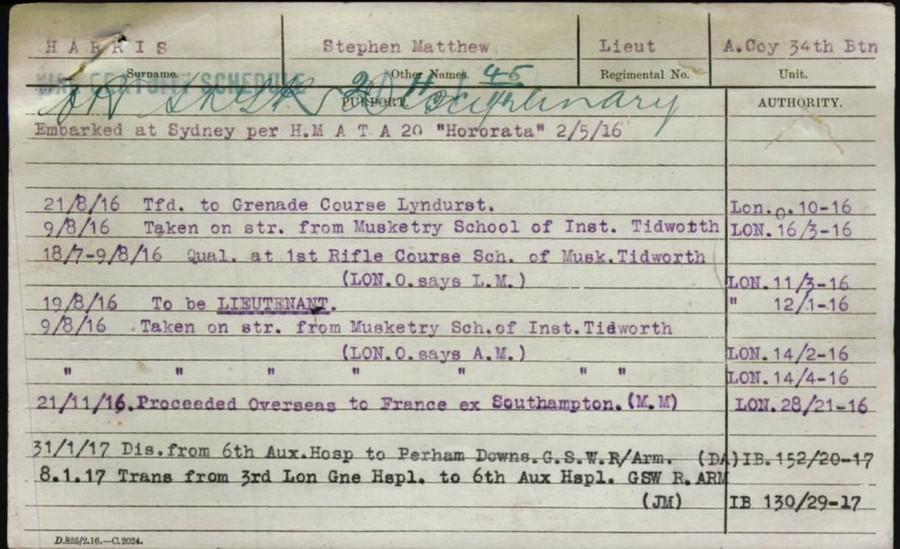 HARRIS Stephen Matthew Lieut A.Coy 34th Btn
Surname. Other Names. Regimental No. Unit.
SCHEDULE 2 11 45
PURPORT. AUTHORITY.
Embarked at Sydney per H.M A T A 20 "Hororata" 2/5/16
21/8/16 Tfd. to Grenade Course Lyndurst. Lon.o.10-16
9/8/16 Taken on str. from Musketry School of Inst. Tidwotth LON.16/3-16
18/7-9/8/16 Qual. at 1st Rifle Course Sch. of Musk.Tidworth
(LON.O.says L.M.) LON.11/3-16
19/8/16 To be LIEUTENANT. " 12/1-16
9/8/16 Taken on str. from Musketry Sch.of Inst.Tidworth
(LON.O.says A.M.) LON.14/2-16
" " " " " " " LON.14/4-16
21/11/16.Proceeded Overseas to France ex Southampton.(M.M) LON.28/21-16
31/1/17 Dis.from 6th Aux.Hosp to Perham Downs.G.S.W.R/Arm. (DA)IB.152/20-17
8.1.17 Trans from 3rd Lon Gne Hspl. to 6th Aux Hspl. GSW R.ARM
(JM) IB 130/29-17
D.825/2.16.—C.2024.